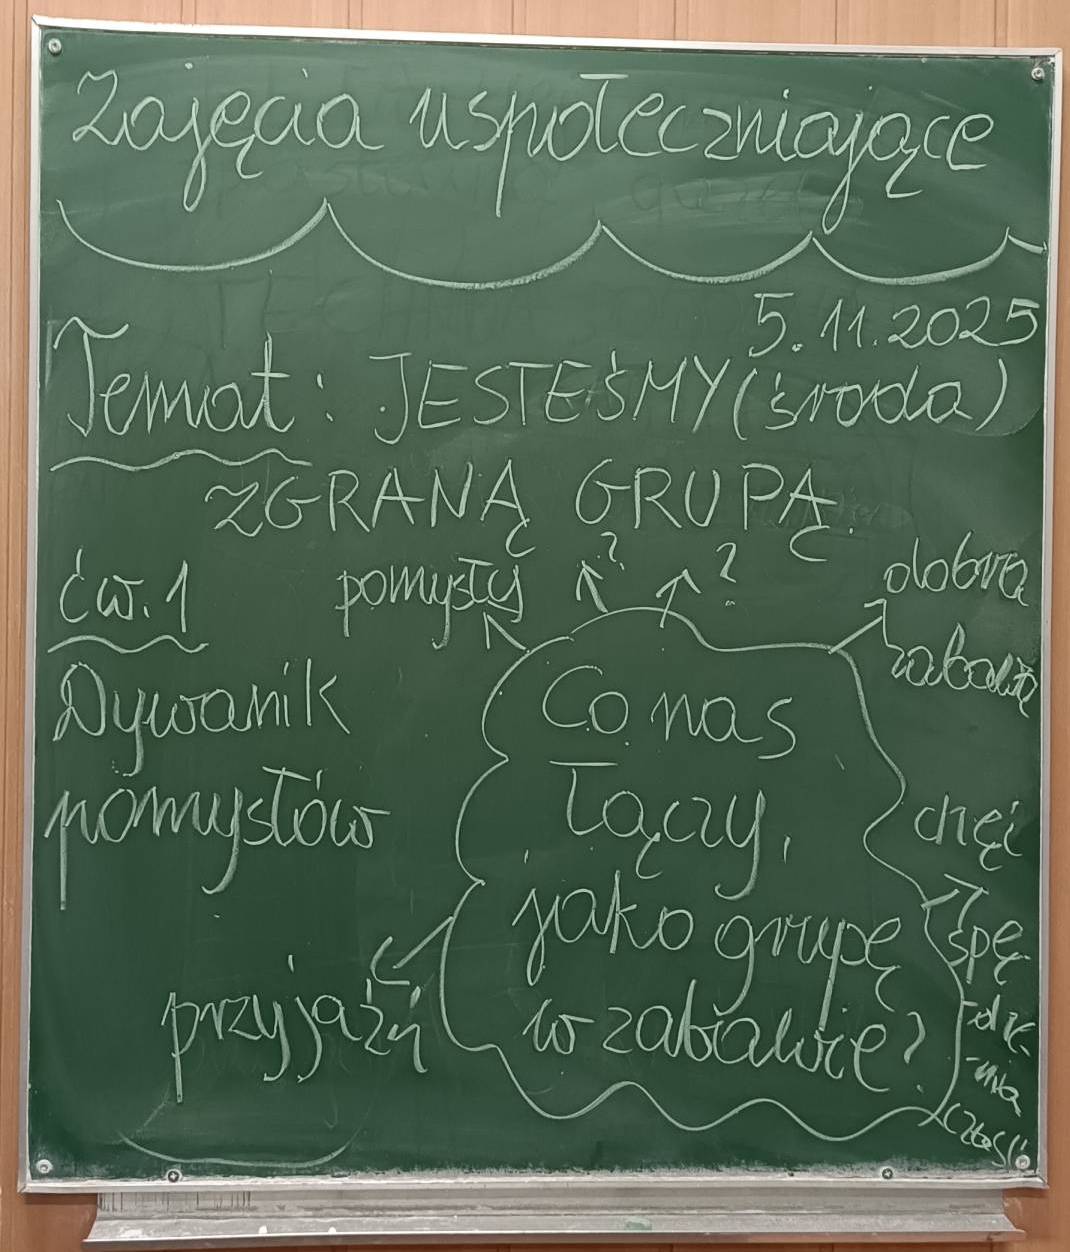 Zajęcia uspołeczniające
5.11.2025
Temat: JESTEŚMY (środa)
ZGRANĄ GRUPĄ.
ćw. 1
Dywanik
pomysłów
Co nas
łączy,
jako grupę
w zabawie?
pomysły
?
?
dobra
zabawa
chęć
spę-
-dze-
-nia
przyjaźń